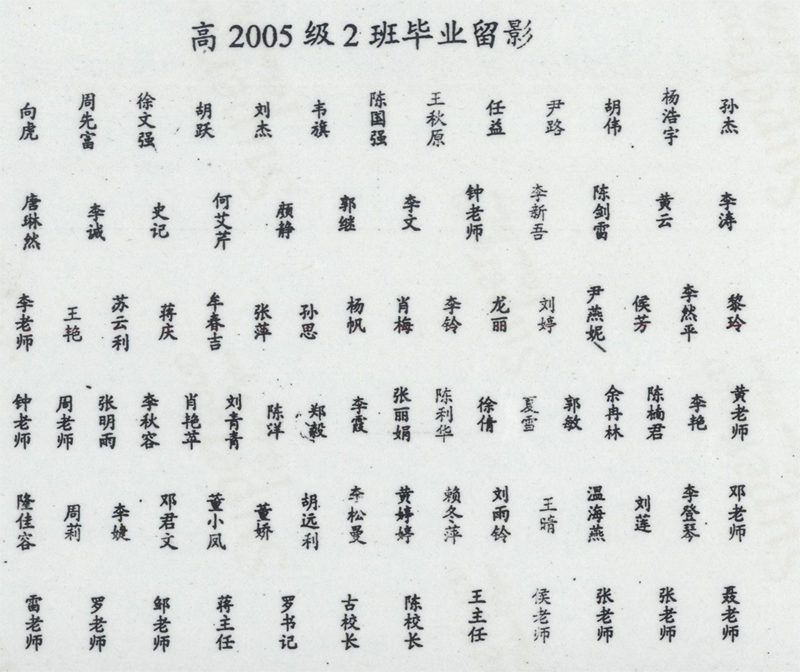 高2005级2班毕业留影
向虎 周先富 徐文强 胡跃 刘杰 韦旗 陈国强 王秋原 任益 尹路 胡伟 杨浩宇 孙杰
唐琳然 李诚 史记 何艾芹 颜静 郭继 李文 钟老师 李新吾 陈剑雷 黄云 李涛
李老师 王艳 苏云利 蒋庆 牟春吉 张萍 孙思 杨帆 肖梅 李铃 龙丽 刘婷 尹燕妮 侯芳 李然平 黎玲
钟老师 周老师 张明雨 李秋容 肖艳苹 刘青青 陈洋 郑毅 李霞 张丽娟 陈利华 徐倩 夏雪 郭敏 余冉林 陈楠君 李艳 黄老师
隆佳容 周莉 李婕 邓君文 董小凤 董娇 胡远利 李松曼 黄婷婷 赖冬萍 刘雨铃 王晴 温海燕 刘莲 李登琴 邓老师
雷老师 罗老师 邹老师 蒋主任 罗书记 古校长 陈校长 王主任 侯老师 张老师 张老师 聂老师